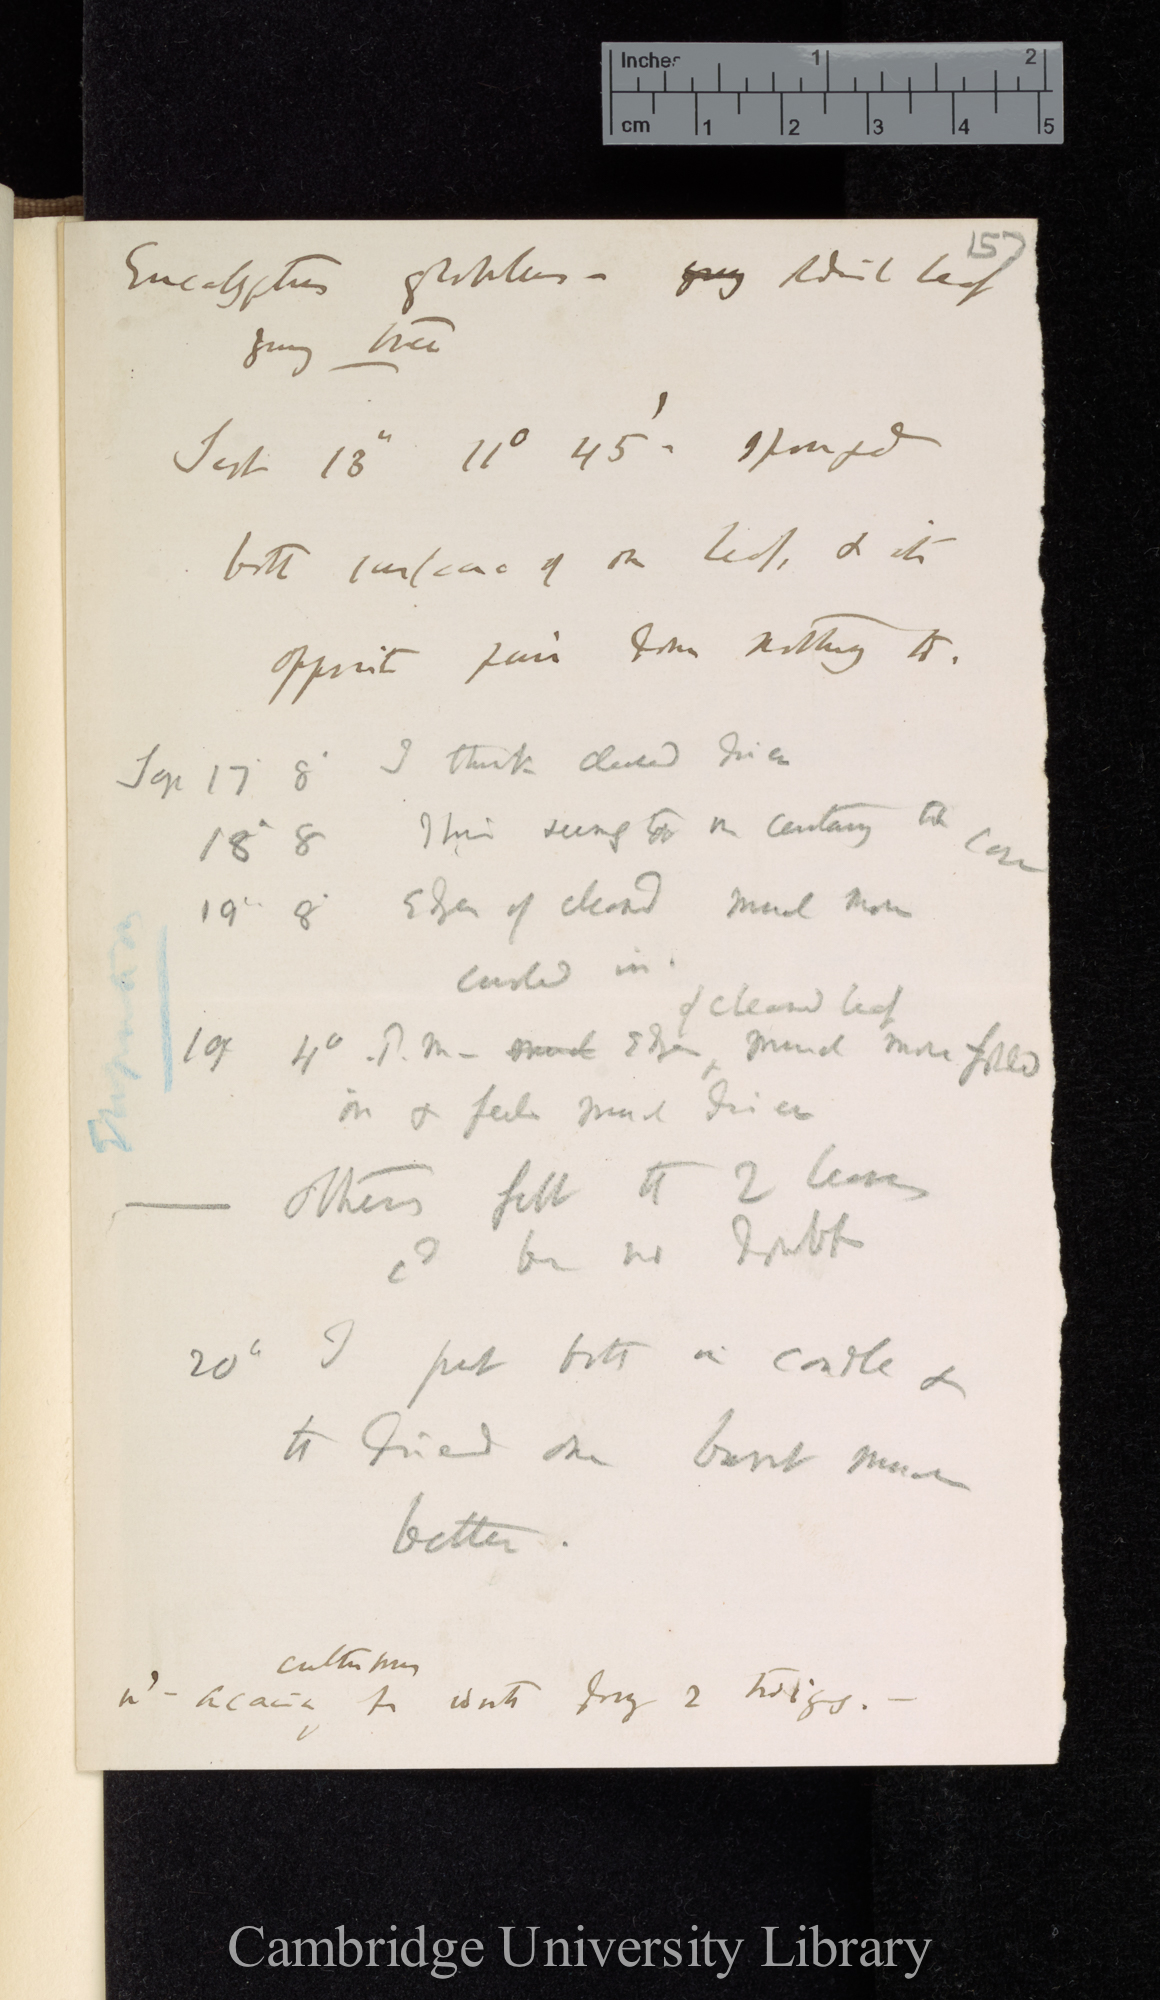 Inches 1 2
cm 1 2 3 4 5
157
Eucalyptus globulus – young adult leaf
young tree
Sept 13th 11° 45' – sponged
both surfaces of one leaf, & its
opposite pair done nothing to.
Sep 17 8° I think cleaned drier
18th 8° This seems to me certainly the case
19th 8° Edges of cleaned much more
curled in.
of cleaned leaf
19th 4° P.m – much Edges much more folded
in & feels much drier
Others felt the 2 leaves
cd be no doubt
20th I put both in candle &
the dried one burnt much
better.
cultriformis
Acacia 2 twigs. –
Cambridge University Library